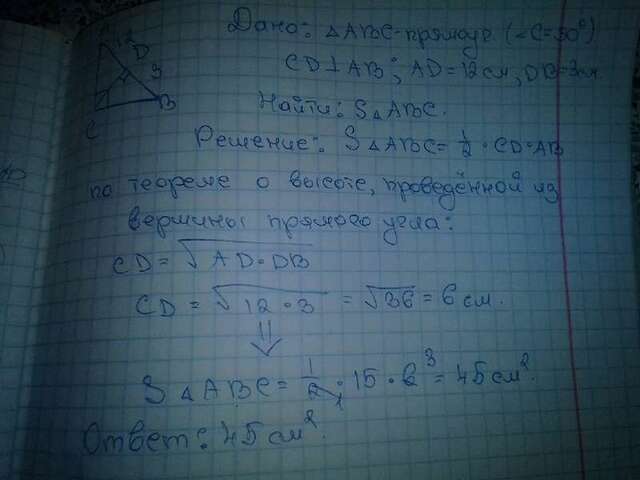 A
12
D
3
B
C
Дано: △ABC-прямоуг (∠C=90°)
CD⊥AB; AD=12см; DB=3см.
Найти: S△ABC.
Решение: S△ABC=1/2·CD·AB
по теореме о высоте, проведённой из
вершины прямого угла:
CD=√AD·DB
CD=√12·3=√36=6см.
⇓
S△ABC=1/2·15·6 3=45см².
Ответ: 45см².